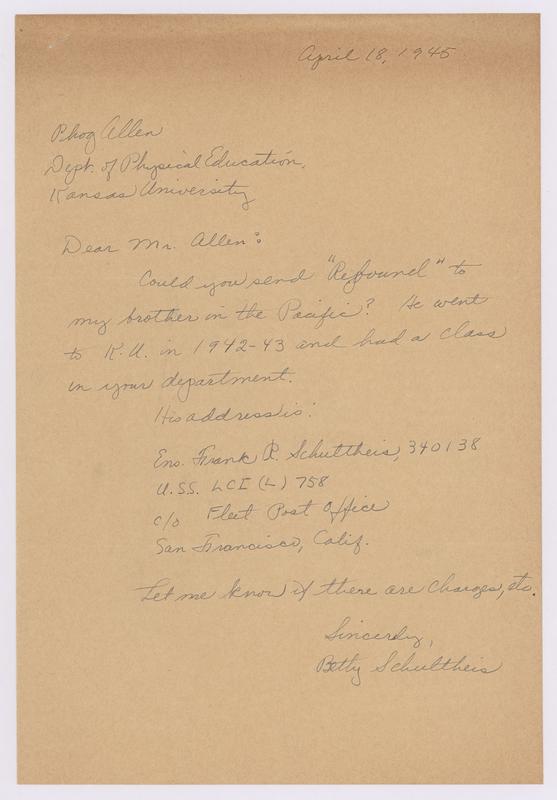 April 18, 1945
Phog Allen
Dept. of Physical Education,
Kansas University
Dear Mr. Allen:
Could you send "Rebound" to
my brother in the Pacific? He went
to K.U. in 1942-43 and had a class
in your department.
His address is:
Ens. Frank R. Schultheis, 340138
U.S.S. LCI (L) 758
c/o Fleet Post Office
San Francisco, Calif.
Let me know if there are charges, etc.
Sincerely,
Betty Schultheis